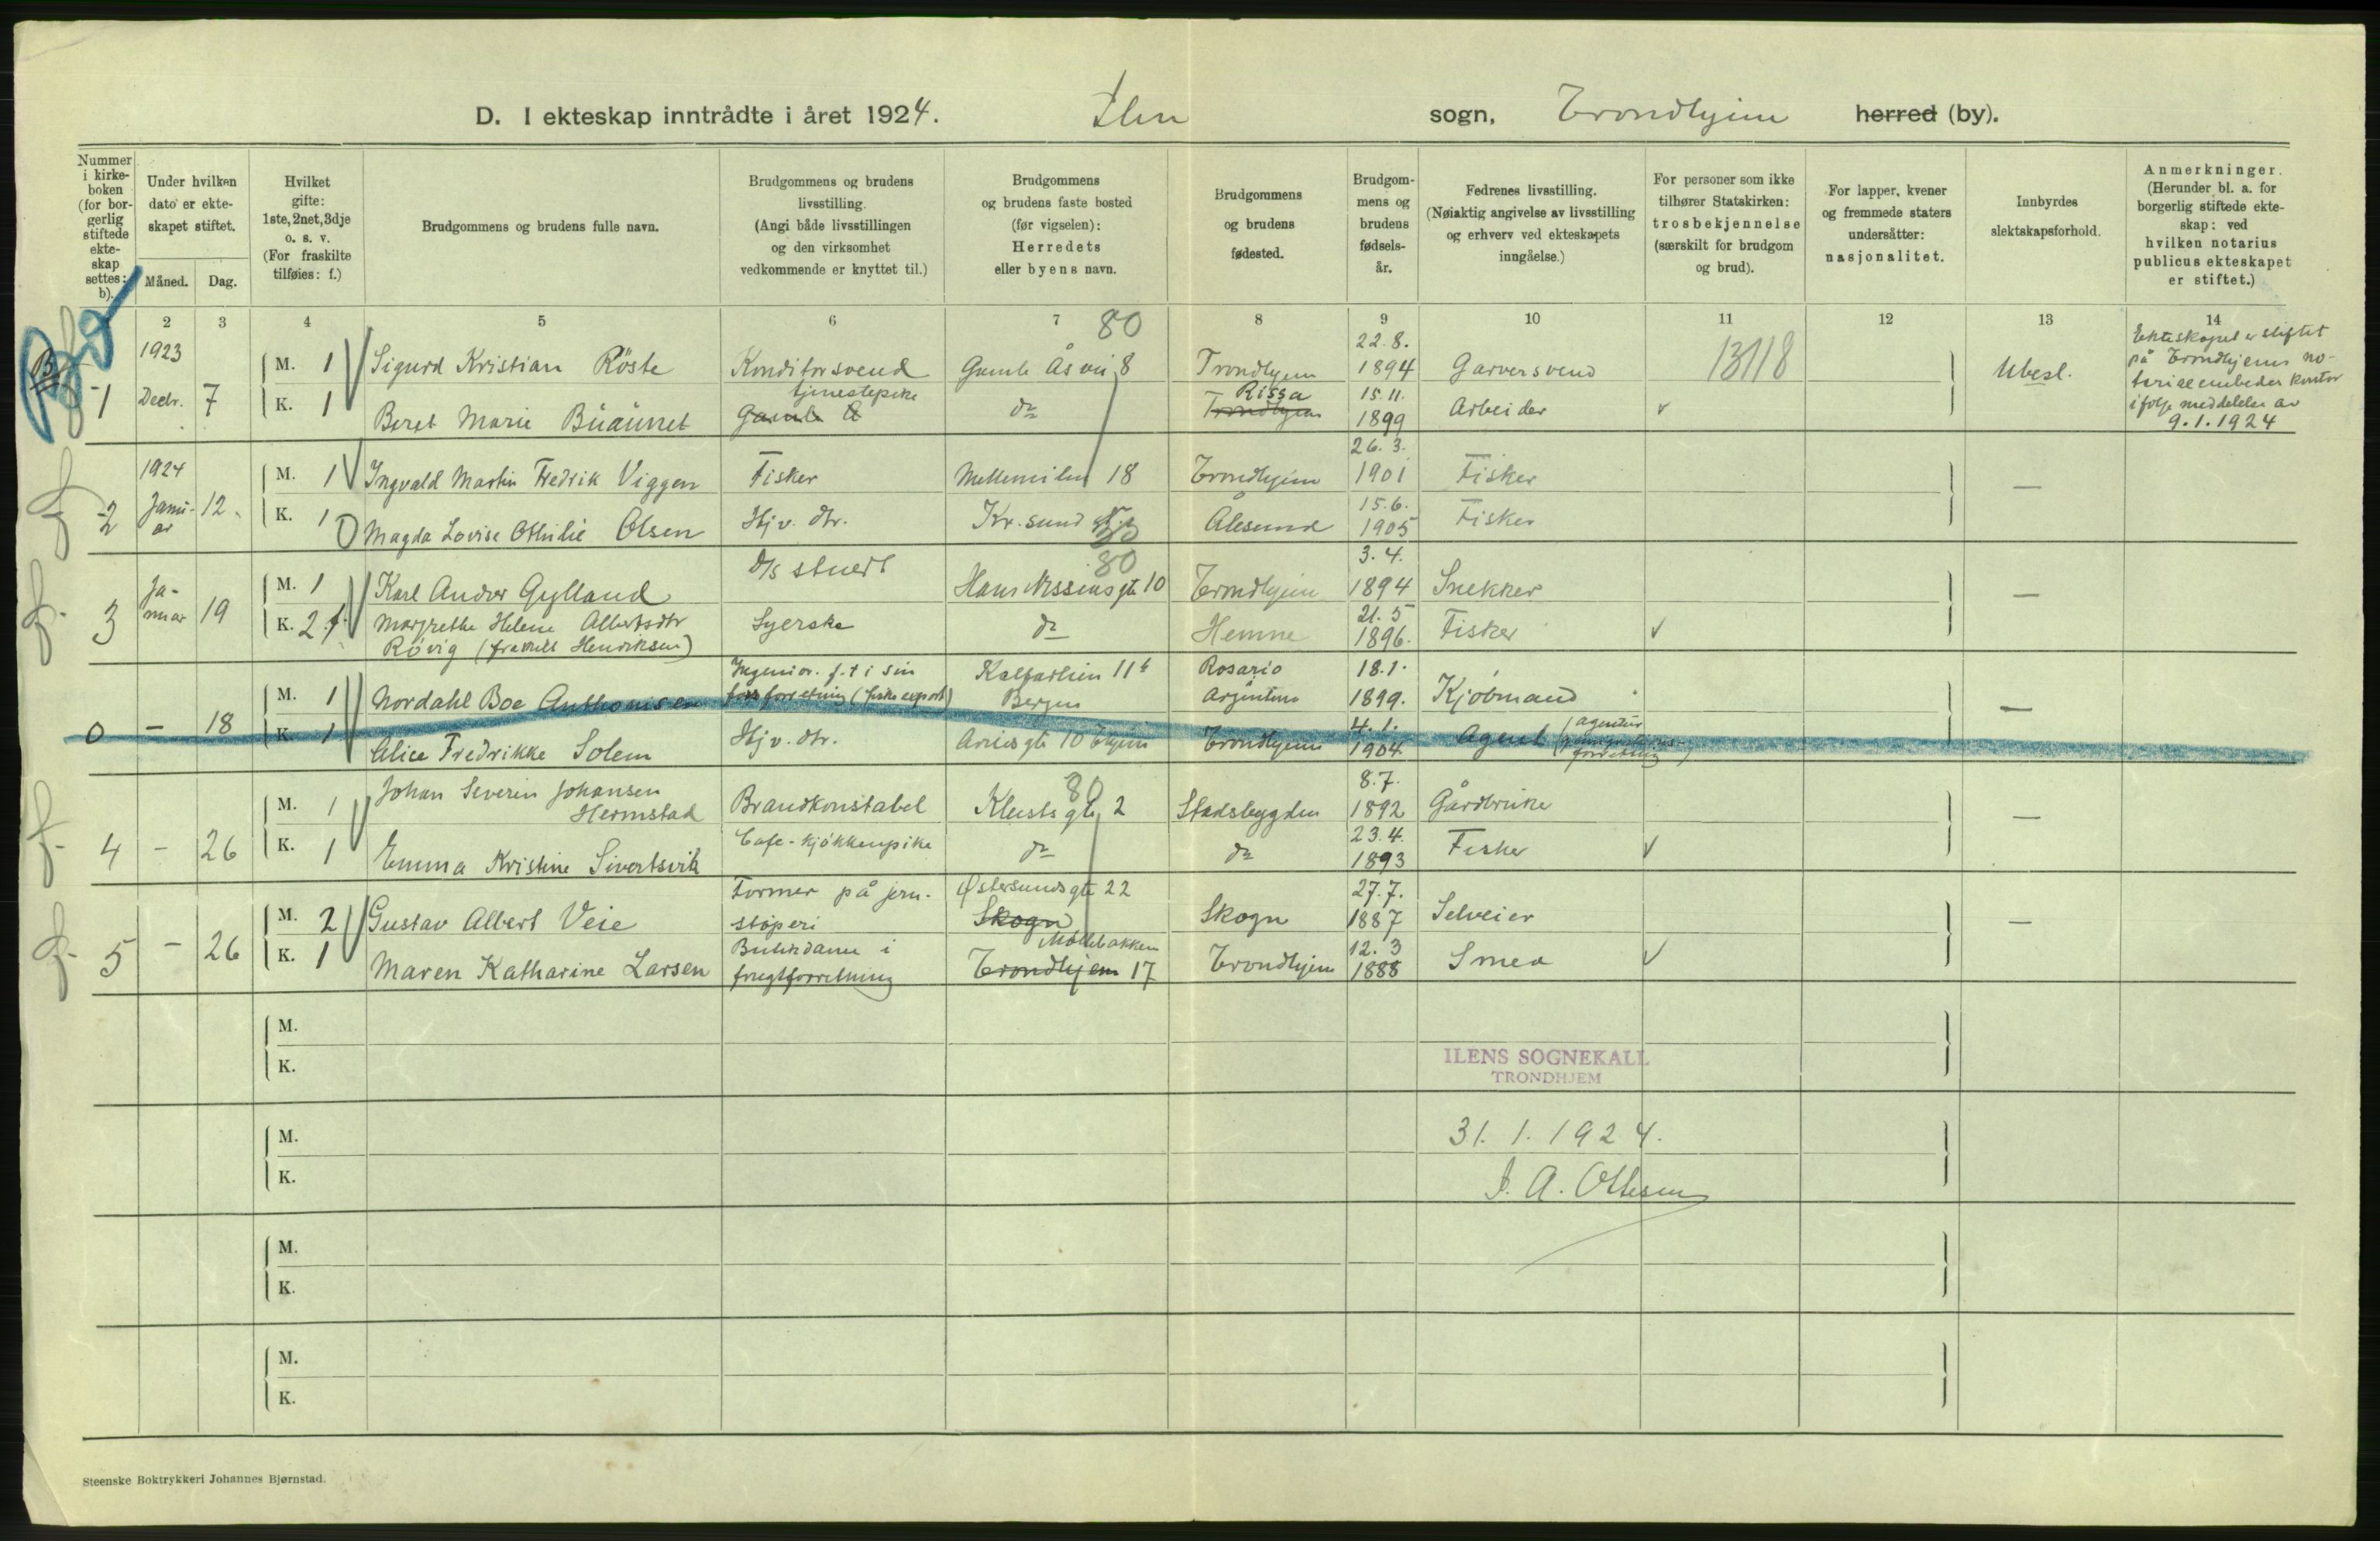 D. I ekteskap inntrådte i året 1924. Ilen sogn, Trondhjem herred (by).
Nummer i kirke-boken (for bor-gerlig stiftede ekte-skap settes: b).
Under hvilken dato er ekte-skapet stiftet.
Måned. Dag.
Hvilket gifte: 1ste, 2net, 3dje o. s. v. (For fraskilte tilføies: f.)
Brudgommens og brudens fulle navn.
Brudgommens og brudens livsstilling. (Angi både livsstillingen og den virksomhet vedkommende er knyttet til.)
Brudgommens og brudens faste bosted (før vigselen): Herredets eller byens navn.
Brudgommens og brudens fødested.
Brudgom-mens og brudens fødsels-år.
Fedrenes livsstilling. (Nøiaktig angivelse av livsstilling og erhverv ved ekteskapets inngåelse.)
For personer som ikke tilhører Statskirken: trosbekjennelse (særskilt for brudgom og brud).
For lapper, kvener og fremmede staters undersåtter: nasjonalitet.
Innbyrdes slektskapsforhold.
Anmerkninger. (Herunder bl. a. for borgerlig stiftede ekte-skap: ved hvilken notarius publicus ekteskapet er stiftet.)
2 3 4 5 6 7 8 9 10 11 12 13 14
80
B
1 1923 Decbr. 7
M. 1 Sigurd Kristian Röste Konditorsvend Gamle Åsvei 8 Trondhjem 22.8. 1894 Garversvend 13118 Ubesl.
K. 1 Beret Marie Büaünet tjenestepike Gamle Å do Rissa Trondhjem 15.11. 1899 Arbeider
Ekteskapet er stiftet
på Trondhjems no-
ifølge meddelelse av
9.1.1924
2 1924 Janu-ar 12.
M. 1 Ingvald Martin Fredrik Viggen Fisker Mellemilen 18 Trondhjem 26.3. 1901 Fisker —
K. 1 Magda Lovise Othilie Olsen Hjv. dtr. Kr.sund Ålesund 15.6. 1905 Fisker
3 Ja-nuar 19
M. 1 Karl Andor Gylland D/s stuert 80 Hans Nissens gt 10 Trondhjem 3.4. 1894 Snekker —
K. 2.f. Margrethe Helene Albertsdtr Syerske do Hemne 21.5 1896. Fisker
Rövig (fraskilt Henriksen)
0 — 18
M. 1 Nordahl Boe Anthonisen Ingeniør. f.t. i sin fars forretning (fiskeexport) Kalfarlien 11b Bergen Rosario Argentina 18.1. 1899. Kjöbmand —
K. 1 Alice Fredrikke Solem Hjv. dtr. Arnes gt 10 Thjem Trondhjem 4.1. 1904 Agent (agentur forretning)
4 — 26
M. 1 Johan Severin Johansen Hermstad Brandkonstabel 80 Kleists gt 2 Stadsbygden 8.7. 1892 Gårdbruker —
K. 1 Emma Kristine Sivertsvik Cafe-kjøkkenpike do do 23.4. 1893 Fisker
5 — 26
M. 2 Gustav Albert Veie Former på jern-støperi Østersunds gt 22 Skogn Skogn 27.7. 1887 Selveier —
K. 1 Maren Katharine Larsen Butikdame i frugtforretning Møllebakken Trondhjem 17 Trondhjem 12.3 1888 Smed
M.
K.
ILENS SOGNEKALL
TRONDHJEM
M.
31. 1. 1924.
K.
J. A. Ottesen
M.
K.
M.
K.
Steenske Boktrykkeri Johannes Bjørnstad.